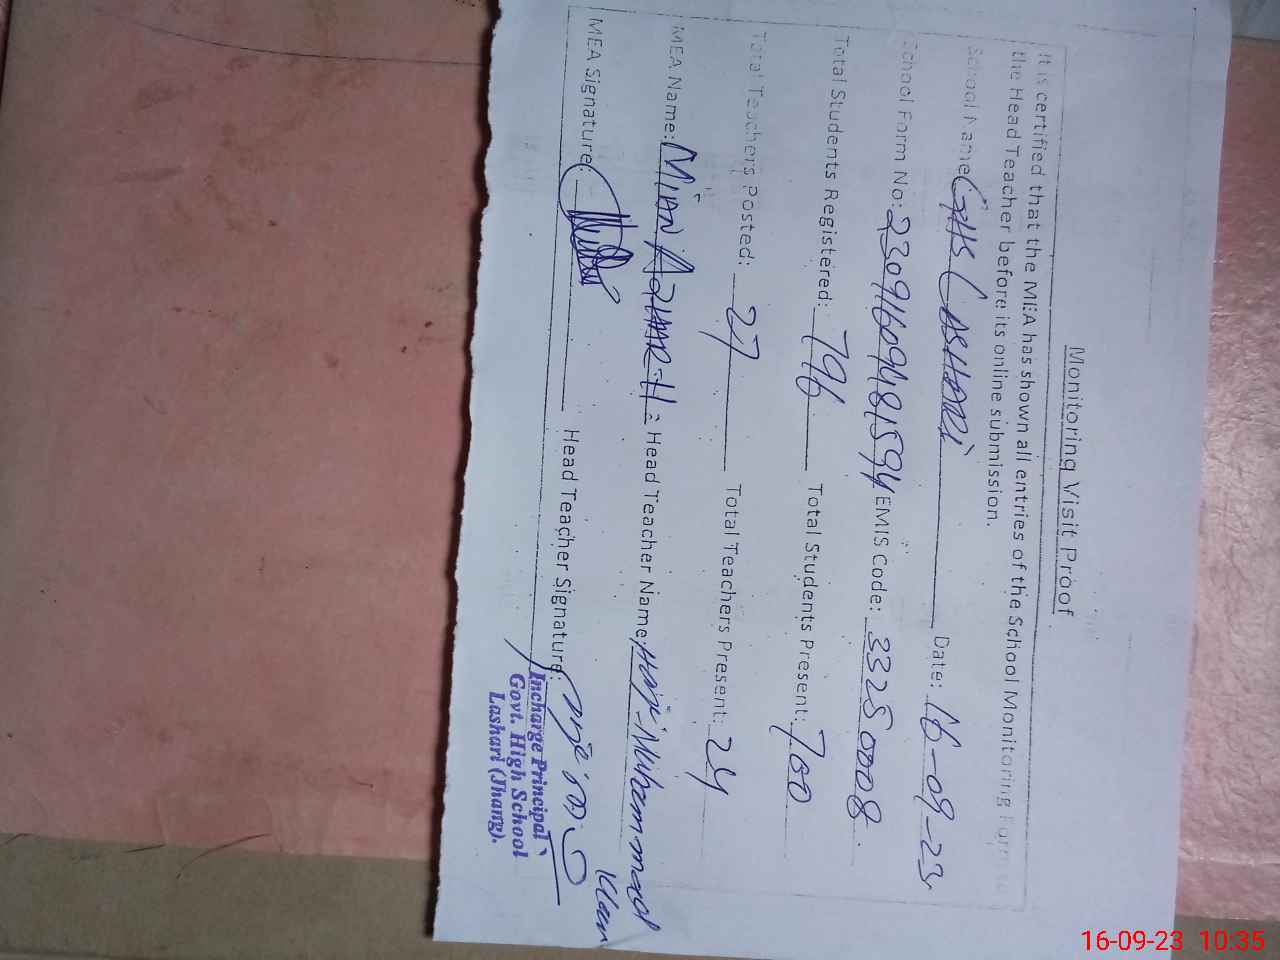 Monitoring Visit Proof
It is certified that the MEA has shown all entries of the School Monitoring Form to
the Head Teacher before its online submission.
School Name GHS LASHARI Date: 16-09-23
School Form No: 23091609481594 EMIS Code: 33250008
Total Students Registered: 796 Total Students Present: 700
Total Teachers Posted: 27 Total Teachers Present: 24
MEA Name: MIAN AZHAR-H Head Teacher Name: Haji Muhammad Khan
MEA Signature: Head Teacher Signature:
Incharge Principal
Govt. High School
Lashari (Jhang).
16-09-23 10:35